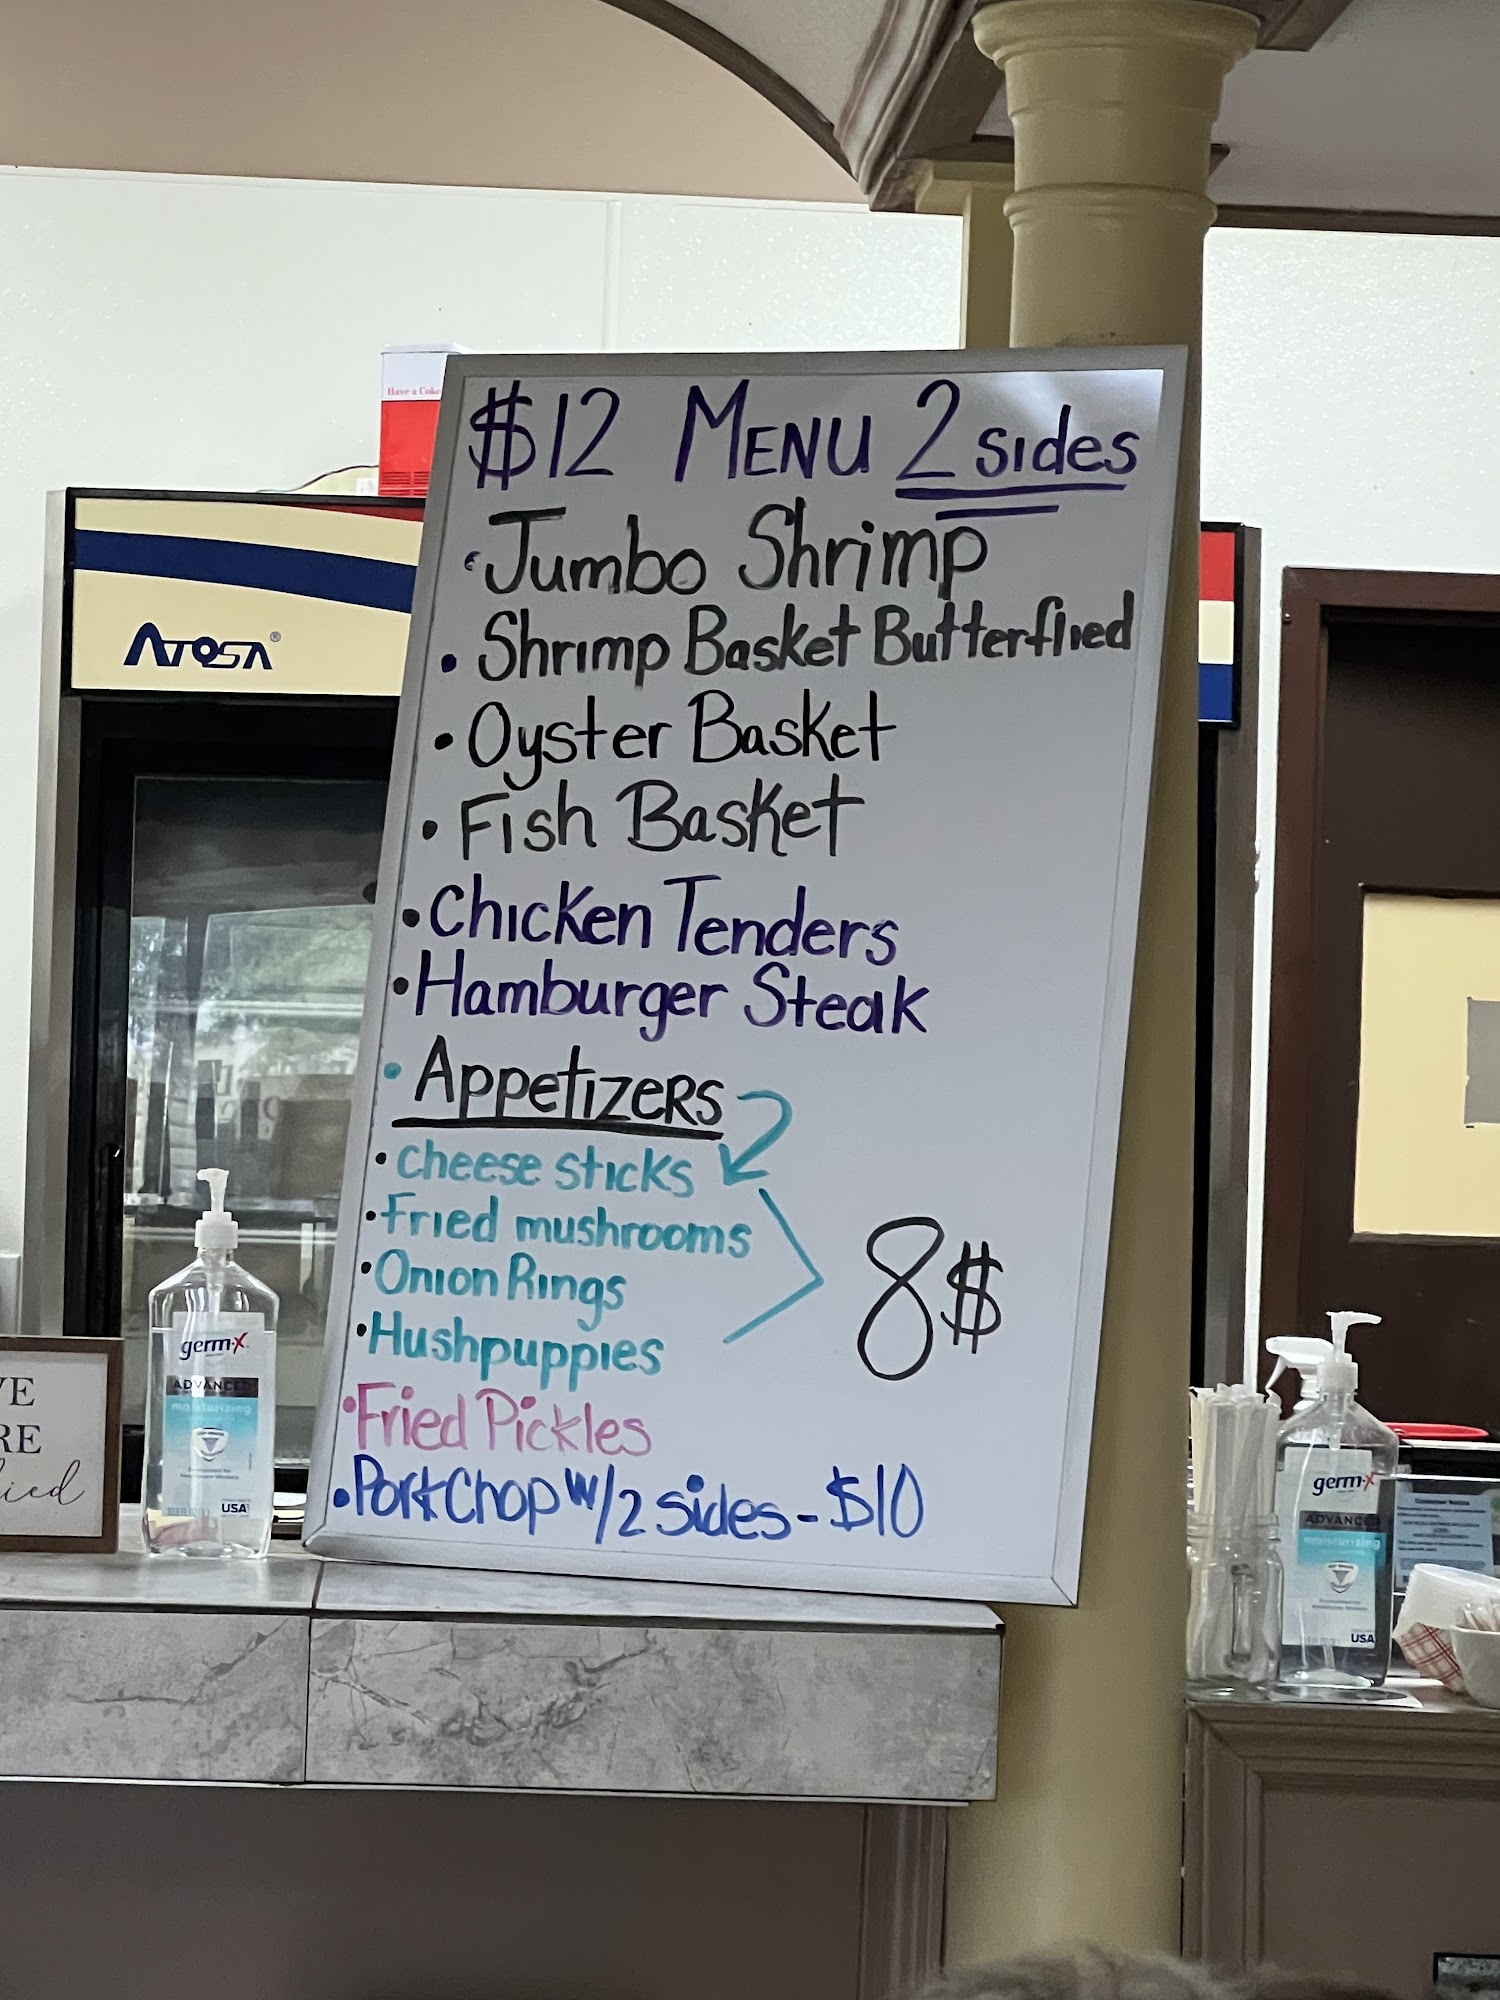 $12 MENU 2 sides
• Jumbo Shrimp
• Shrimp Basket Butterflied
• Oyster Basket
• Fish Basket
• Chicken Tenders
• Hamburger Steak
• APPETIZERS
• cheese sticks
• Fried mushrooms
• Onion Rings
• Hushpuppies
8$
• Fried Pickles
• Pork Chop w/2 sides - $10
Have a Coke
ATOSA®
germ-x
ADVANCED
moisturizing
USA
VE
RE
ied
germ-x
ADVANCED
moisturizing
USA
Customer Notice